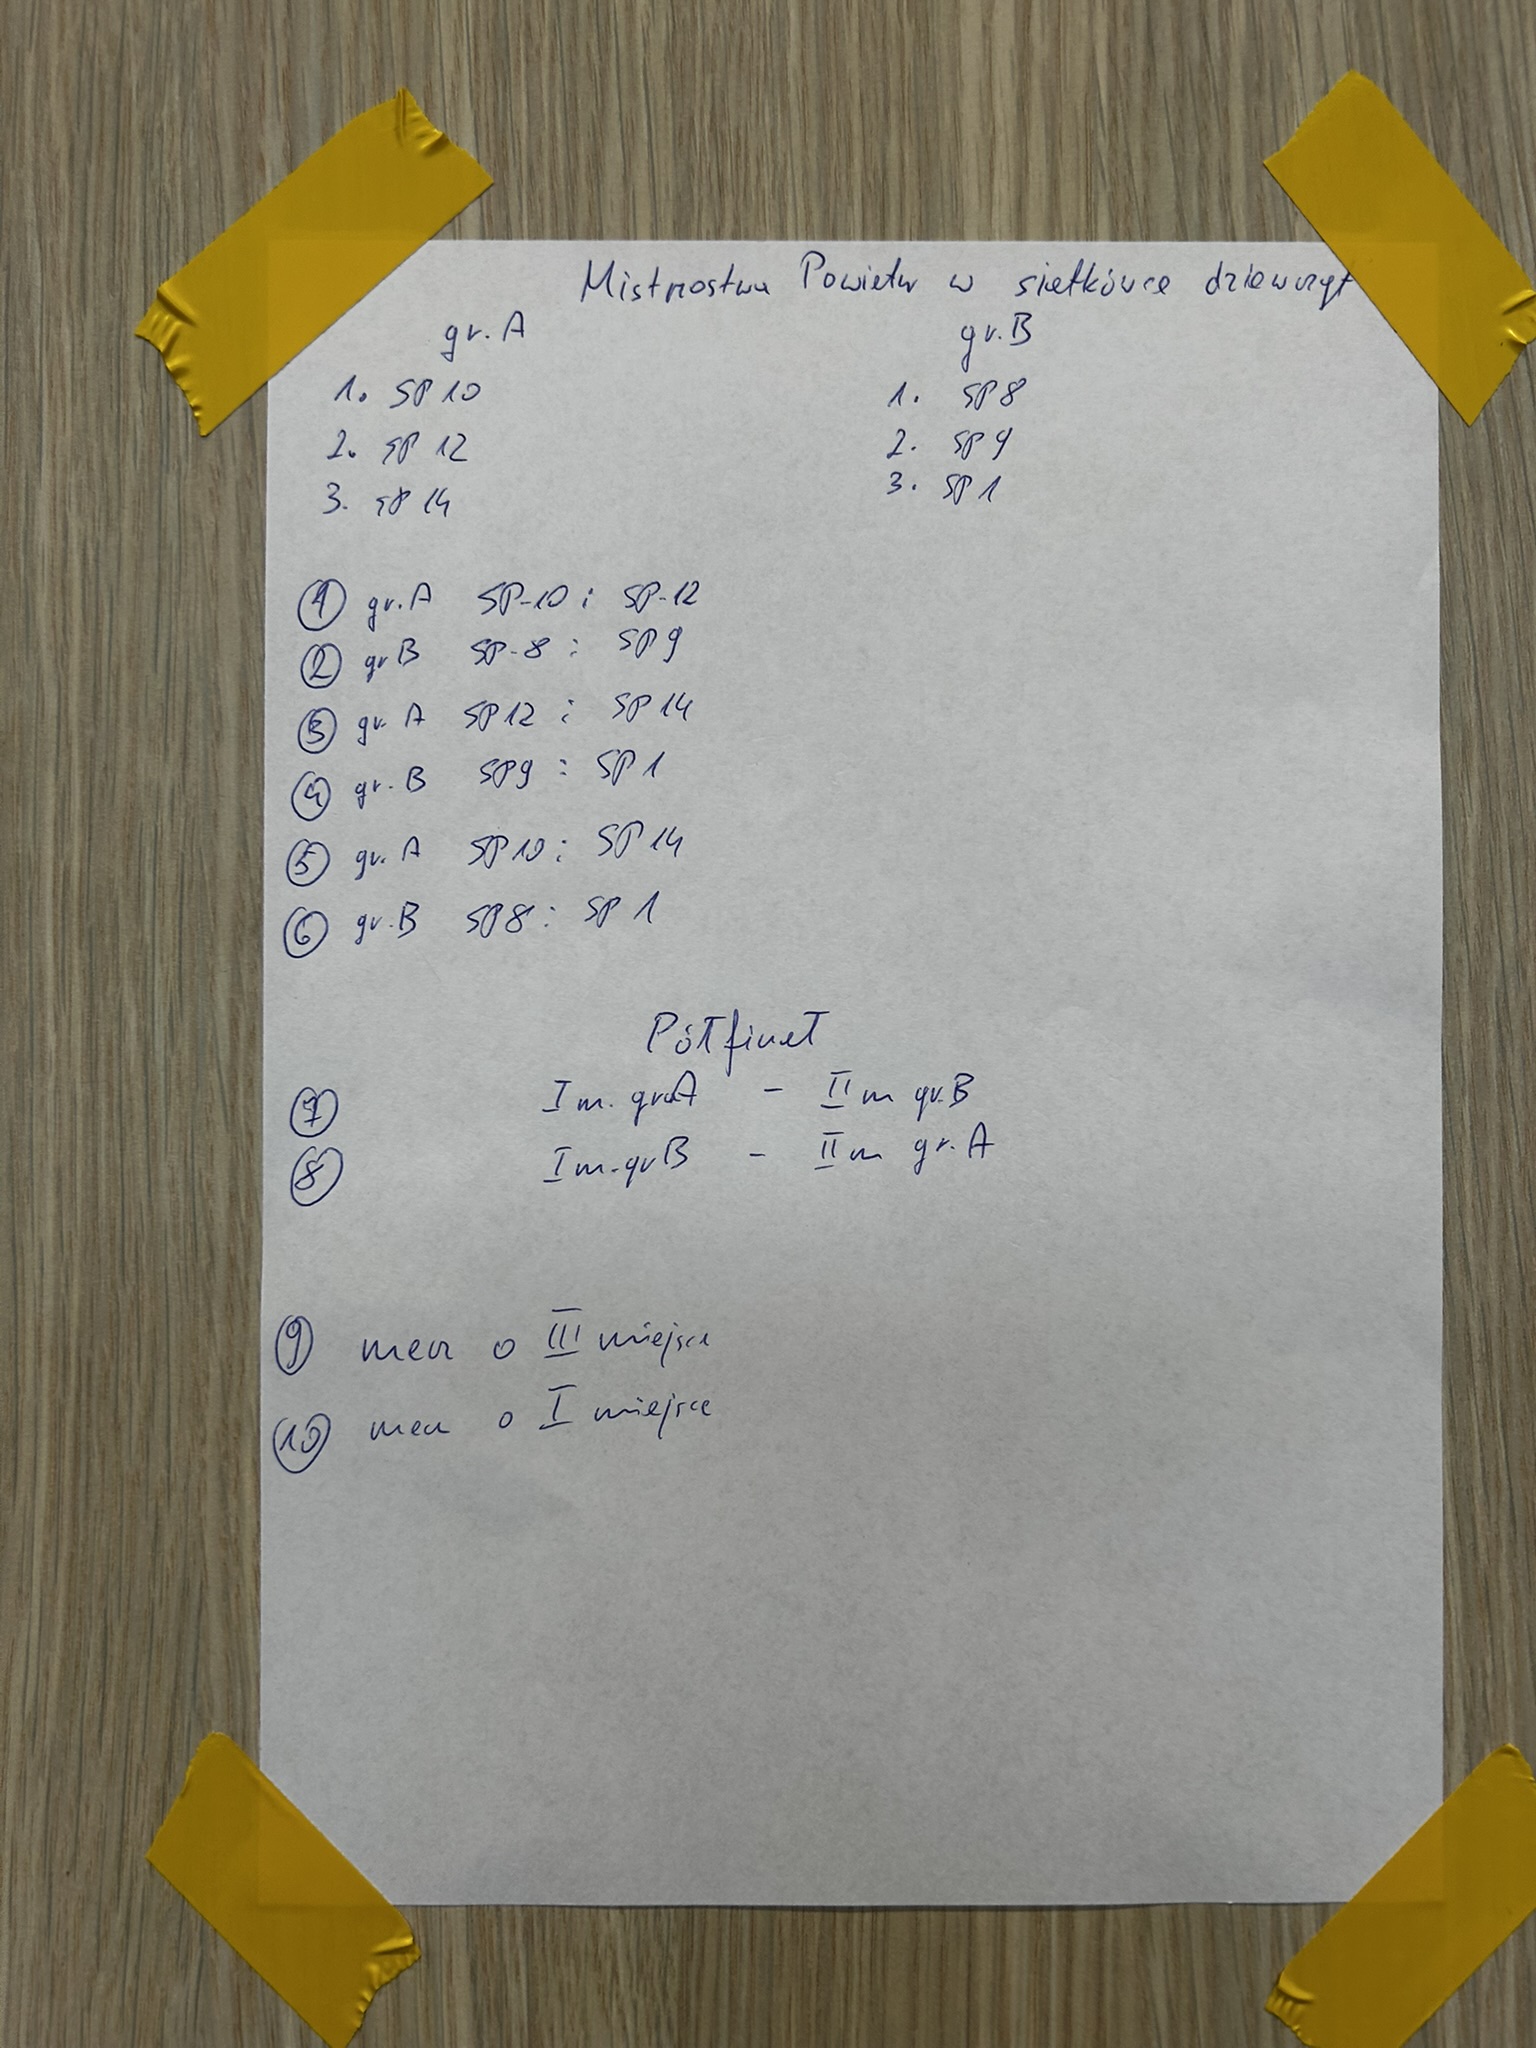 Mistrzostwa Powiatu w siatkówce dziewcząt
gr. A gr. B
1. SP 10 1. SP 8
2. SP 12 2. SP 9
3. SP 14 3. SP 1
1 gr. A SP-10 : SP-12
2 gr B SP-8 : SP 9
3 gr. A SP 12 : SP 14
4 gr. B SP 9 : SP 1
5 gr. A SP 10 : SP 14
6 gr. B SP 8 : SP 1
Półfinał
7 I m. gr. A - II m gr. B
8 I m. gr B - II m gr. A
9 mecz o III miejsce
10 mecz o I miejsce